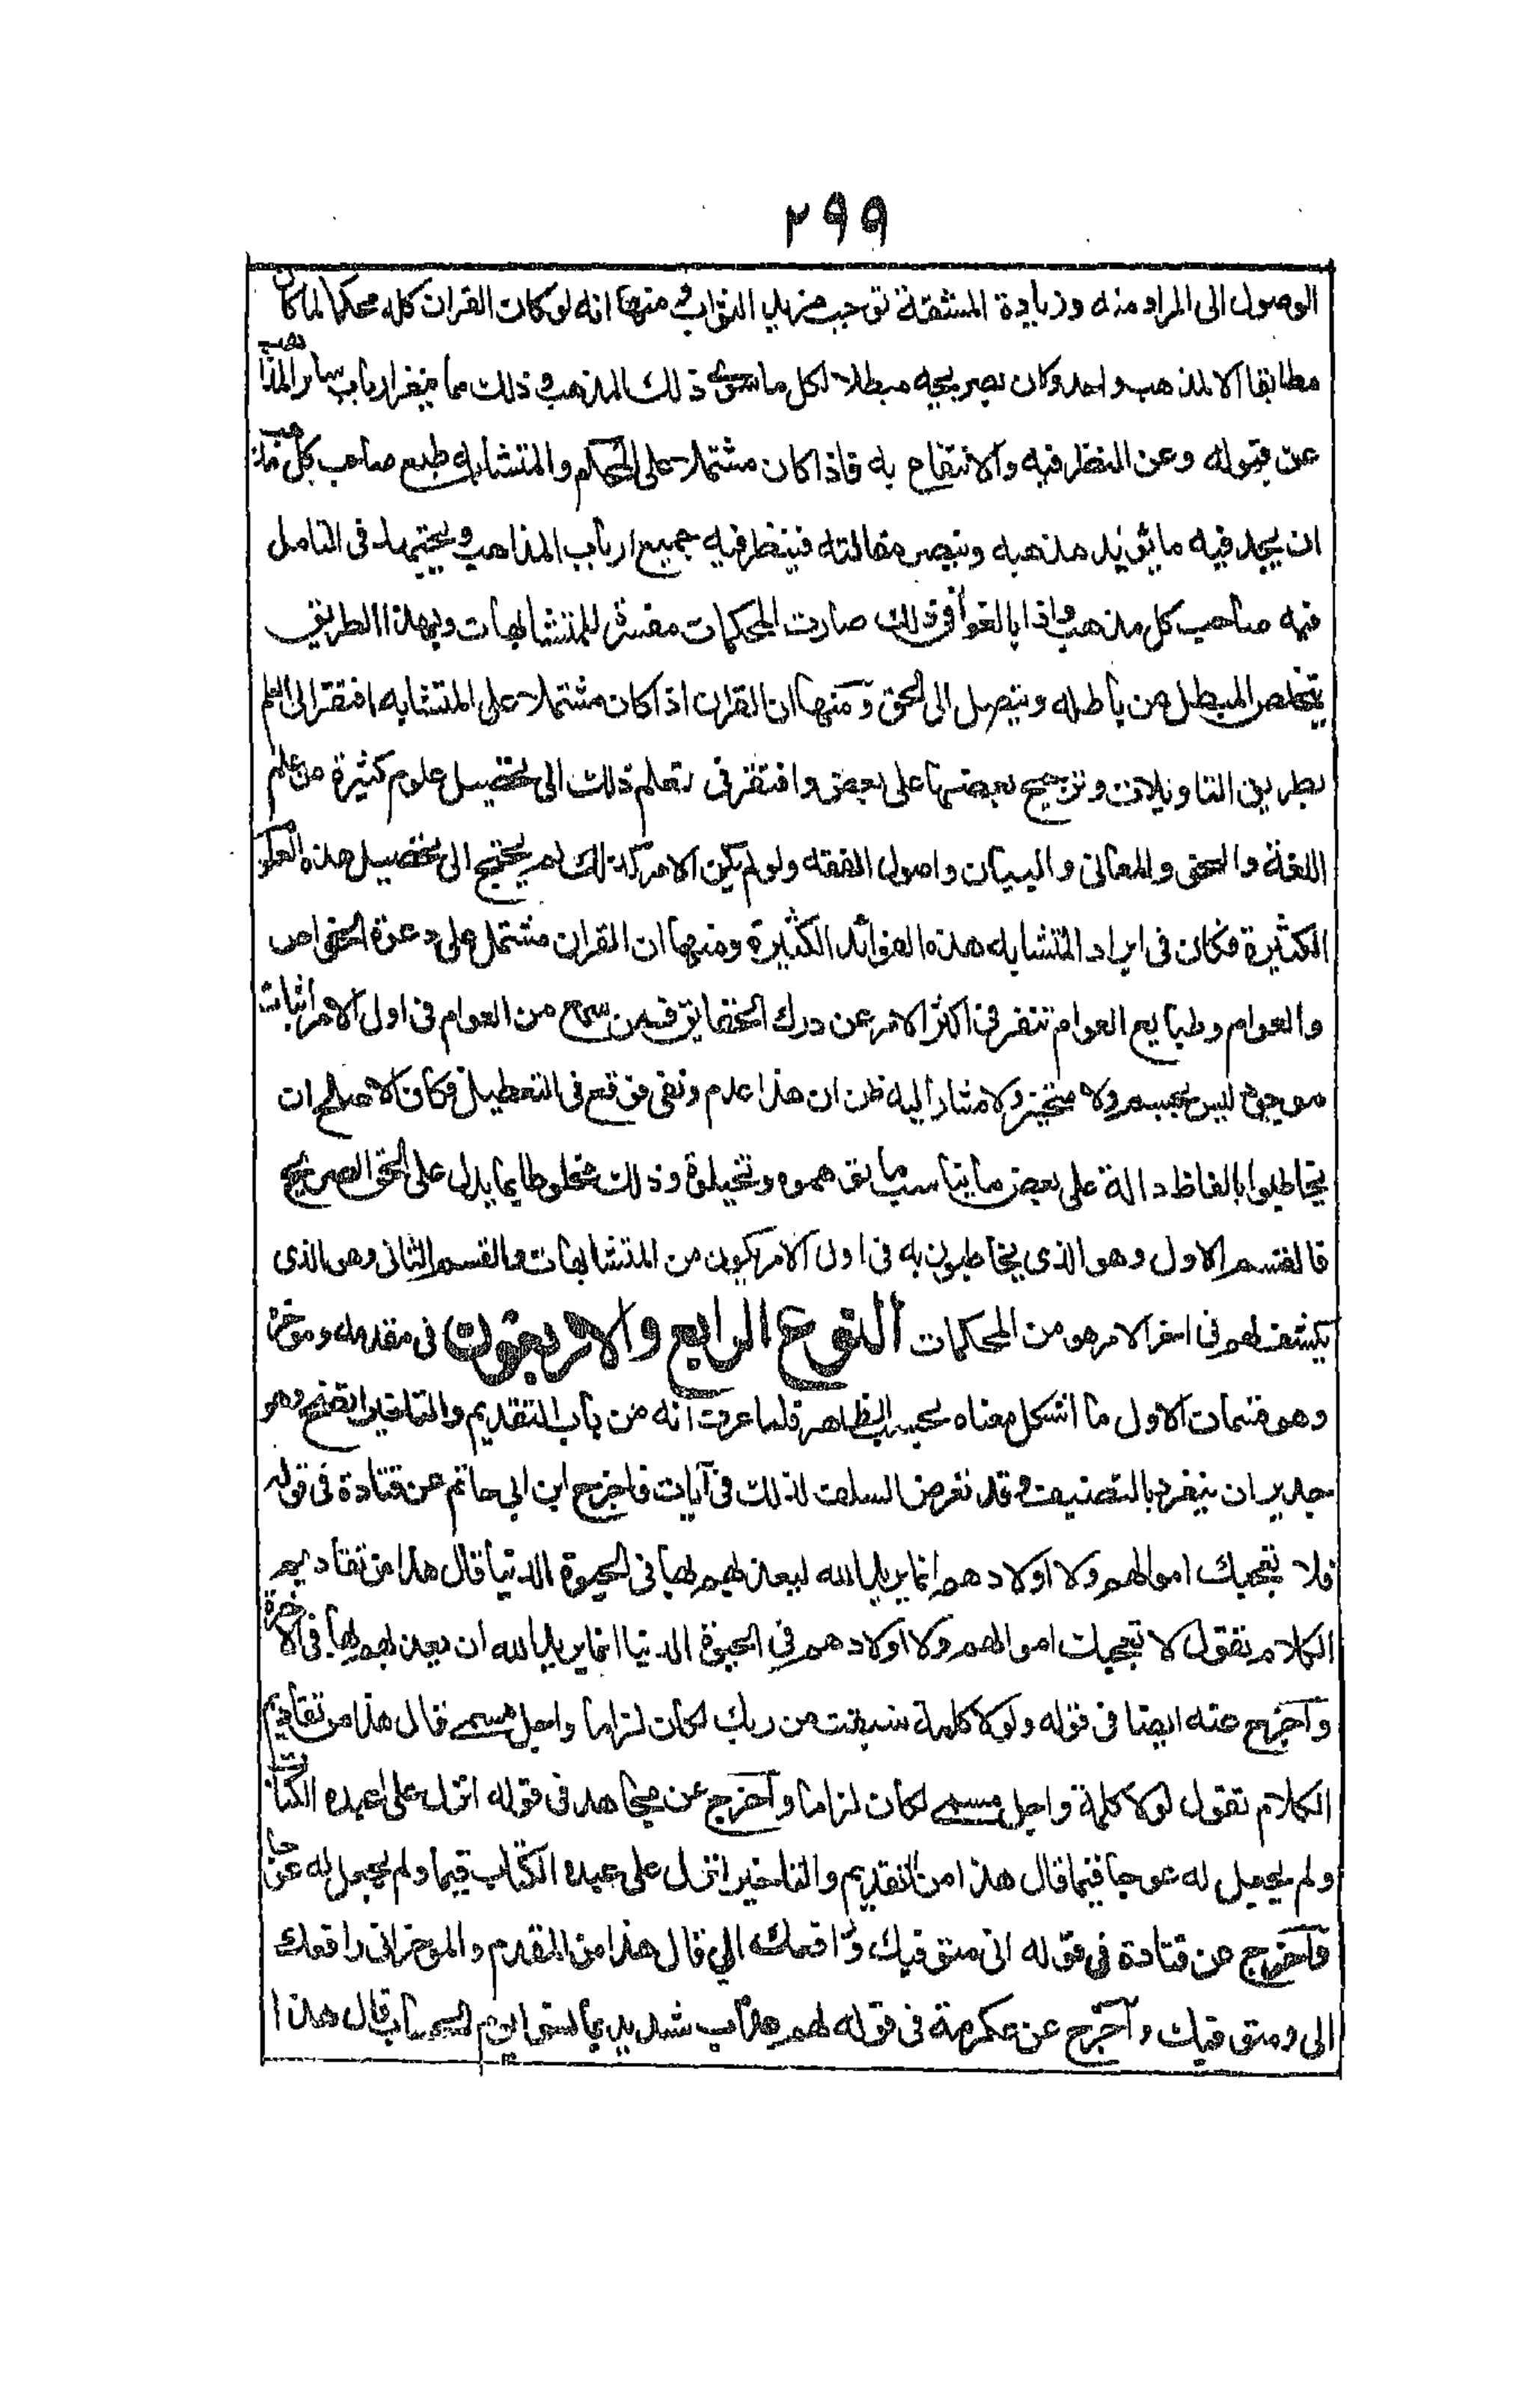 ٢٩٩
الوصول الى المراد منه وزيادة المشقة توجب مزيد الثواب ومنها انه لو كان القران كله محكما لما كان
مطابقا الا لمذهب واحد وكان بصريحه مبطلا لكل ما سوى ذلك المذهب وذلك مما ينفر ارباب سائر المذاهب
عن قبوله وعن النظر فيه والانتفاع به فاذا كان مشتملا على المحكم والمتشابه طمع صاحب كل مذهب
ان يجد فيه ما يؤيد مذهبه وينصر مقالته فينظر فيه جميع ارباب المذاهب ويجتهد فى التامل
فيه صاحب كل مذهب واذا بالغوا فى ذلك صارت المحكمات مفسرة للمتشابهات وبهذا الطريق
يتخلص المبطل من باطله ويتصل الى الحق ومنها ان القران اذا كان مشتملا على المتشابه افتقر الى العلم
بطريق التاويلات وترجيح بعضها على بعض وافتقر فى تعلم ذلك الى تحصيل علوم كثيرة من علم
اللغة والنحو والمعانى والبيان واصول الفقه ولو لم يكن الامر كذلك لم يحتج الى تحصيل هذه العلوم
الكثيرة فكان فى ايراد المتشابه هذه الفوائد الكثيرة ومنها ان القران مشتمل على دعوة الخواص
والعوام وطبايع العوام تنفر فى اكثر الامر عن درك الحقايق فمن سمع من العوام فى اول الامر اثبات
موجود ليس بجسم ولا متحيز ولا مشار اليه ظن ان هذا عدم ونفى فوقع فى التعطيل فكان الاصلح ان
يخاطبوا بالفاظ دالة على بعض ما يناسب ما توهموه وتخيلوه وذلك مخلوطا بما يدل على الحق الصريح
فالقسم الاول وهو الذى يخاطبون به فى اول الامر يكون من المتشابهات والقسم الثانى وهو الذى
يكشف لهم فى اخر الامر هو من المحكمات النوع الرابع والاربعون فى مقدمه وموخره
وهو قسمان الاول ما اشكل معناه بحسب الظاهر فلما عرف انه من باب التقديم والتاخير اتضح وهو
جدير ان ينفرد بالتصنيف وقد تعرض السلف لذلك فى آيات فاخرج ابن ابى حاتم عن قتادة فى قوله
فلا تعجبك اموالهم ولا اولادهم انما يريد الله ليعذبهم بها فى الحيوة الدنيا قال هذا من تقاديم
الكلام تقول لا تعجبك اموالهم ولا اولادهم فى الحيوة الدنيا انما يريد الله ان يعذبهم بها فى الاخرة
وآخرج عنه ايضا فى قوله ولولا كلمة سبقت من ربك لكان لزاما واجل مسمى قال هذا من تقاديم
الكلام تقول لولا كلمة واجل مسمى لكان لزاما وآخرج عن مجاهد فى قوله انزل على عبده الكتاب
ولم يجعل له عوجا قيما قال هذا من التقديم والتاخير انزل على عبده الكتاب قيما ولم يجعل له عوجا
وآخرج عن قتادة فى قوله انى متوفيك ورافعك الي قال هذا من المقدم والموخر انى رافعك
الى ومتوفيك وآخرج عن عكرمة فى قوله لهم عذاب شديد بما نسوا يوم الحساب قال هذا